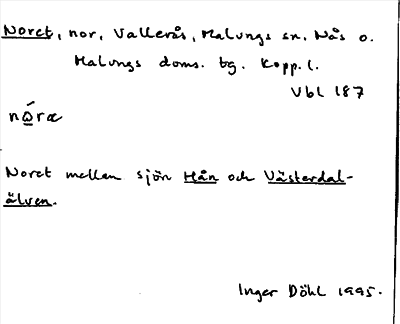 Noret, nor, Vallerås, Malungs sn. Nås o.
Malungs doms. tg. Kopp. l.
Vbl 187
nǫ́ræ
Noret mellan sjön Hån och Västerdal-
älven.
Inger Döhl 1995.